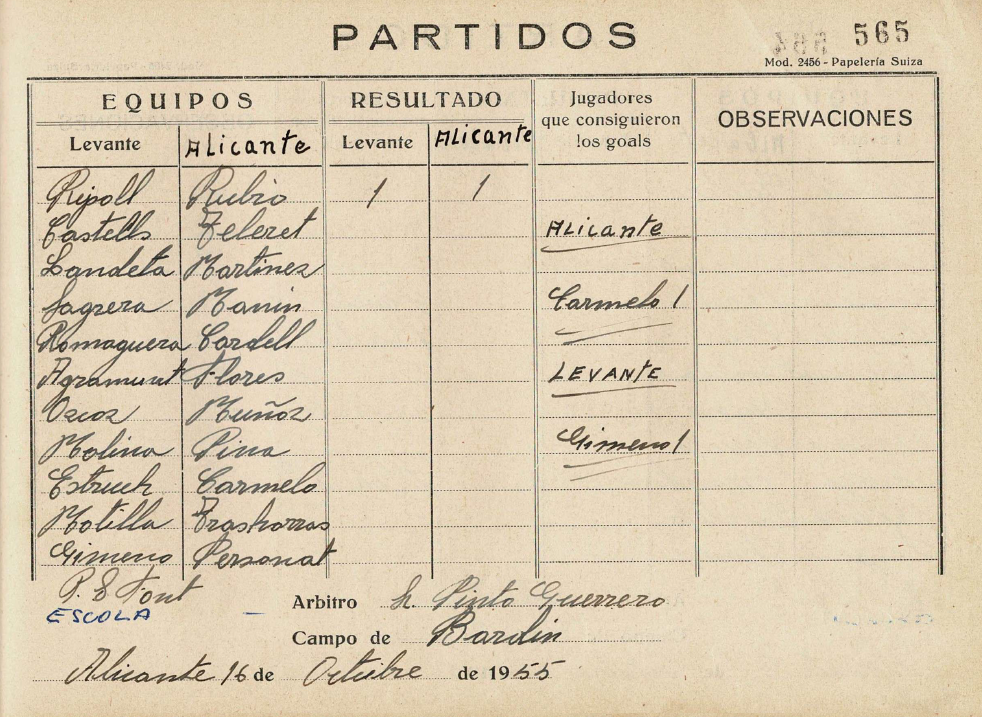 PARTIDOS
565
Mod. 2456 - Papelería Suiza
EQUIPOS RESULTADO Jugadores que consiguieron los goals OBSERVACIONES
Levante Alicante Levante Alicante
Ripoll Rubio 1 1
Castells Teleret Alicante
Landeta Martinez
Sagrera Manin Carmelo 1
Romaguera Cardell
Agramunt Flores LEVANTE
Ozcoz Muñoz
Molina Pina Gimeno 1
Estruch Carmelo
Motilla Trashorras
Gimeno Personat
P. E Font
ESCOLA —
Arbitro Sr. Pinto Guerrero
Campo de Bardin
Alicante 16 de Octubre de 1955